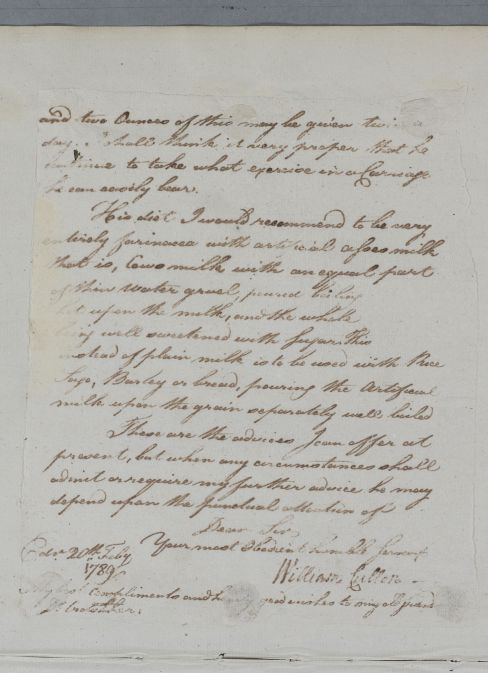 and two Ounces of this may be given twice a
day. I shall think it very proper that he
continue to take what exercise in a Carriage
he can easily bear.
His diet I would recommend to be very
entirely farinacea with artificial asses milk
that is, Cows milk with an equal part
of thin Water gruel, poured boiling
hot upon the milk, and the whole
being well sweetened with Sugar. This
instead of plain milk is to be used with Rice
Sago, Barley or bread, pouring the Artificial
milk upon the grain separately well boiled
These are the advices I can offer at
present, but when any circumstances shall
admit or require my further advice he may
depend upon the punctual attention of
Dear Sir
Your most Obedient humble Servant
Edinr. 20th. Feby
1789
William Cullen
My best Compliments and good wishes to my old friend
Dr.